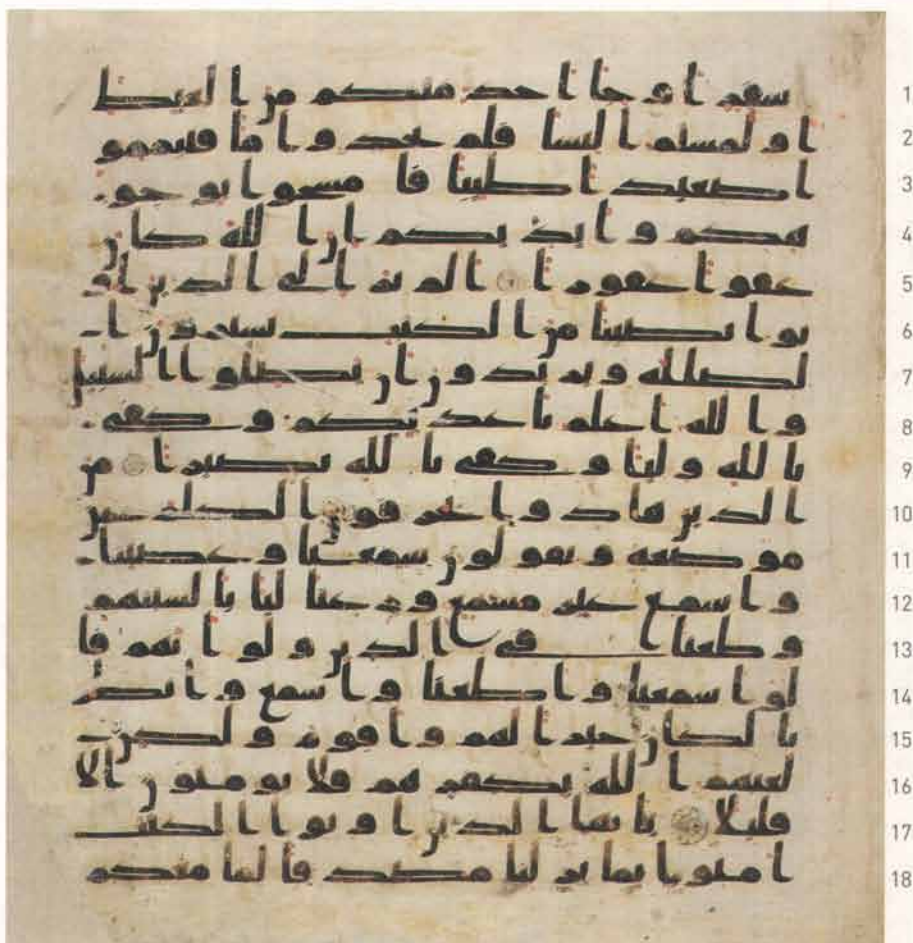 1 سفر او جا احد منكم من الغيط
2 او لمستم النسا فلم تجدوا ما فتيممو
3 ا صعيدا طيبا فامسحوا بوجو
4 هكم وايديكم ان الله كان
5 عفوا غفورا الم تر الى الذين او
6 توا نصيبا من الكتب يشترون ا
7 لضللة ويريدون ان تضلوا السبيل
8 والله اعلم باعدائكم وكفى
9 بالله وليا وكفى بالله نصيرا من
10 الذين هادوا يحرفون الكلم عن
11 موضعه ويقولون سمعنا وعصينا
12 واسمع غير مسمع ورعنا ليا بالسنتهم
13 وطعنا في الدين ولو انهم قا
14 لوا سمعنا واطعنا واسمع وانظر
15 نا لكان خيرا لهم واقوم ولكن
16 لعنهم الله بكفرهم فلا يومنون الا
17 قليلا يايها الذين اوتوا الكتب
18 امنوا بما نزلنا مصدقا لما معكم